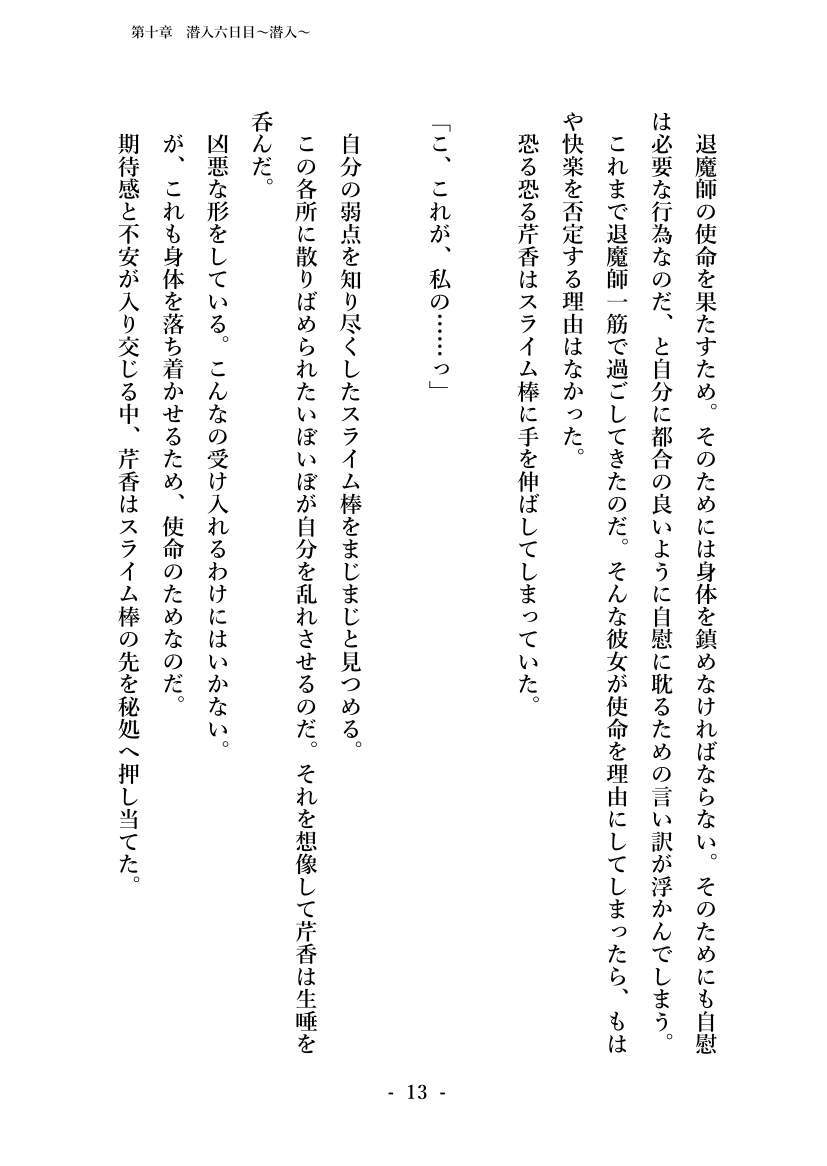 第十章　潜入六日目～潜入～
　退魔師の使命を果たすため。そのためには身体を鎮めなければならない。そのためにも自慰
は必要な行為なのだ、と自分に都合の良いように自慰に耽るための言い訳が浮かんでしまう。
　これまで退魔師一筋で過ごしてきたのだ。そんな彼女が使命を理由にしてしまったら、もは
や快楽を否定する理由はなかった。
　恐る恐る芹香はスライム棒に手を伸ばしてしまっていた。
「こ、これが、私の……っ」
　自分の弱点を知り尽くしたスライム棒をまじまじと見つめる。
　この各所に散りばめられたいぼいぼが自分を乱れさせるのだ。それを想像して芹香は生唾を
呑んだ。
　凶悪な形をしている。こんなの受け入れるわけにはいかない。
　が、これも身体を落ち着かせるため、使命のためなのだ。
　期待感と不安が入り交じる中、芹香はスライム棒の先を秘処へ押し当てた。
- 13 -